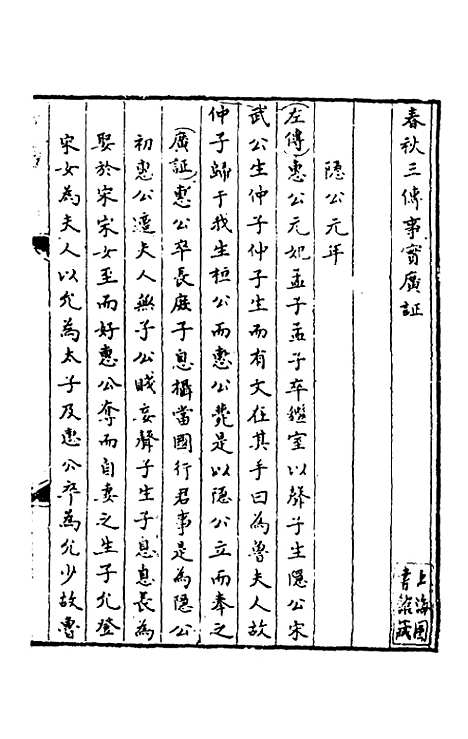 春秋三傳事實廣証
上海圖書館藏
隱公元年
左傳惠公元妃孟子孟子卒繼室以聲子生隱公宋
武公生仲子仲子生而有文在其手曰為魯夫人故
仲子歸于我生桓公而惠公薨是以隱公立而奉之
廣証惠公卒長庶子息攝當國行君事是為隱公
初惠公適夫人無子公賤妾聲子生子息息長為
娶於宋宋女至而好惠公奪而自妻之生子允登
宋女為夫人以允為太子及惠公卒為允少故魯